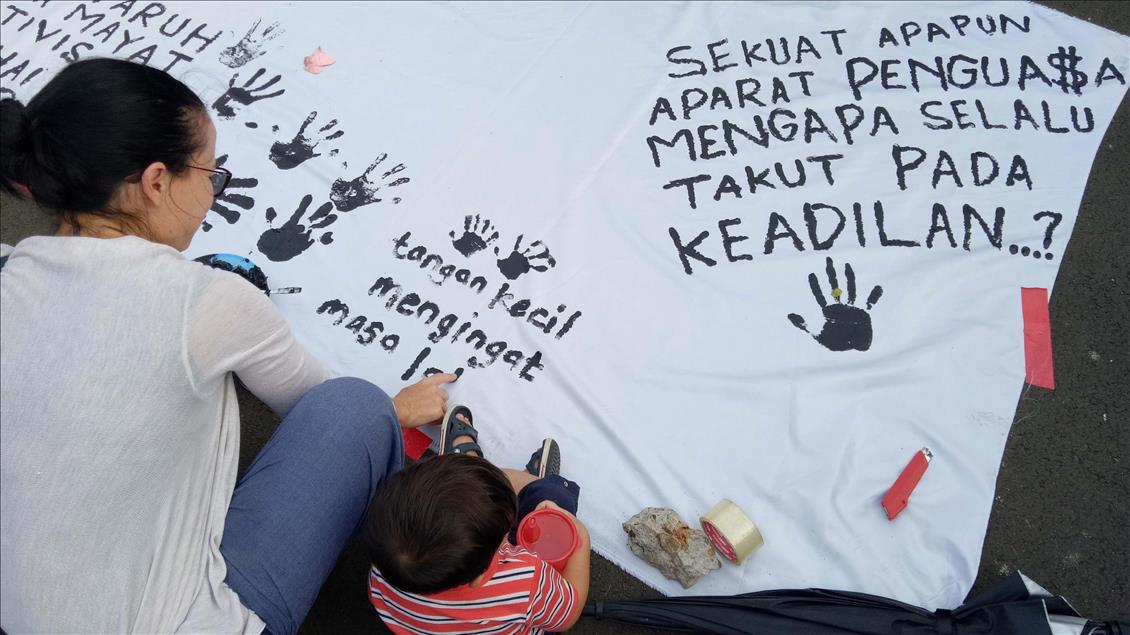 ARUH
TIVIS MAYAT
SEKUAT APAPUN
APARAT PENGUA$A
MENGAPA SELALU
TAKUT PADA
KEADILAN...?
tangan kecil
mengingat
masa